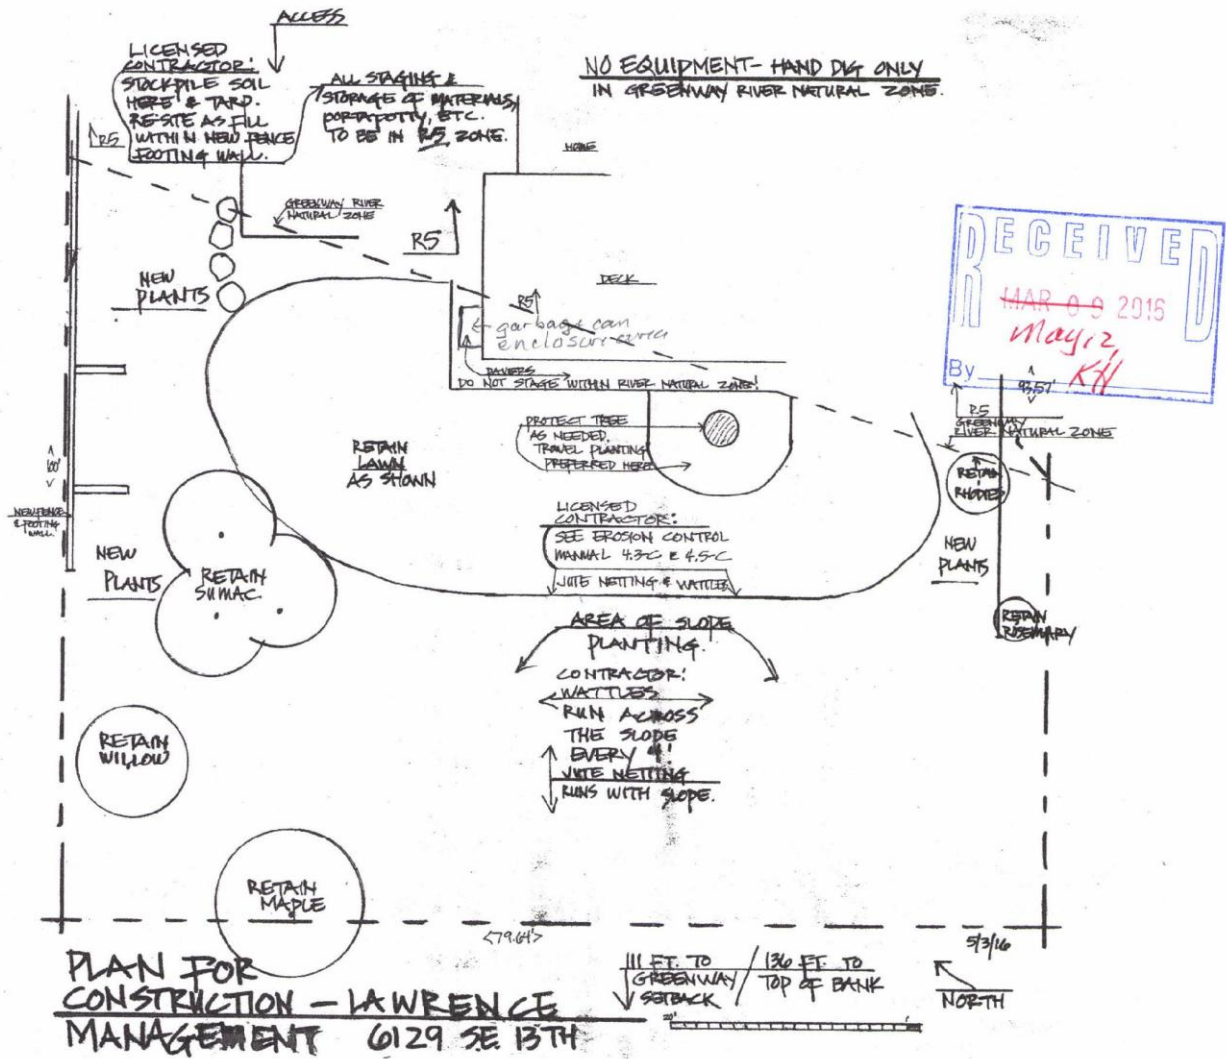 ACCESS
LICENSED
CONTRACTOR:
STOCKPILE SOIL
HERE & TARP.
RE-SITE AS FILL
WITHIN NEW FENCE
FOOTING WALL.
ALL STAGING &
STORAGE OF MATERIALS,
PORTAPOTTY, ETC.
TO BE IN R5 ZONE.
NO EQUIPMENT - HAND DIG ONLY
IN GREENWAY RIVER NATURAL ZONE.
R5
HOME
GREENWAY RIVER
NATURAL ZONE
R5
NEW
PLANTS
DECK
R5
garbage can
enclosure
PAVERS
DO NOT STAGE WITHIN RIVER NATURAL ZONE!
RECEIVED
MAR 09 2016
May 12,
KH
By
93.57'
R5
GREENWAY
RIVER NATURAL ZONE
PROTECT TREE
AS NEEDED.
TROWEL PLANTING
PREFERRED HERE
RETAIN
LAWN
AS SHOWN
RETAIN
RHODIES
100'
NEW FENCE
& FOOTING
WALL
LICENSED
CONTRACTOR:
SEE EROSION CONTROL
MANUAL 4.3-C & 4.5-C
JUTE NETTING & WATTLES
NEW
PLANTS
NEW
PLANTS
RETAIN
SUMAC
RETAIN
ROSEMARY
AREA OF SLOPE
PLANTING.
CONTRACTOR:
WATTLES
RUN ACROSS
THE SLOPE
EVERY 4'.
JUTE NETTING
RUNS WITH SLOPE.
RETAIN
WILLOW
RETAIN
MAPLE
<79.64'>
5/3/16
PLAN FOR
CONSTRUCTION - LAWRENCE
MANAGEMENT 6129 S.E. 13TH
111 FT. TO
GREENWAY
SETBACK
136 FT. TO
TOP OF BANK
NORTH
20'
1'